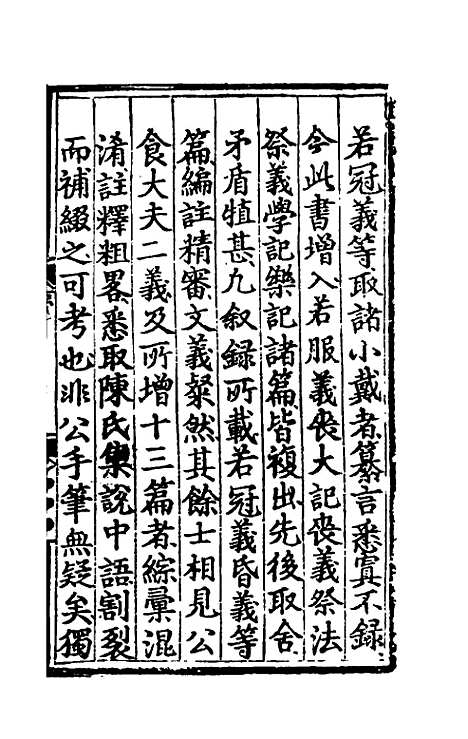 若冠義等取諸小戴者纂言悉寘不錄
今此書增入若服義喪大記喪義祭法
祭義學記樂記諸篇皆複出先後取舍
矛盾犆甚九叙録所載若冠義昏義等
篇編註精審文義粲然其餘士相見公
食大夫二義及所增十三篇者綜彙混
淆註釋粗畧悉取陳氏集説中語割裂
而補綴之可考也非公手筆無疑矣獨